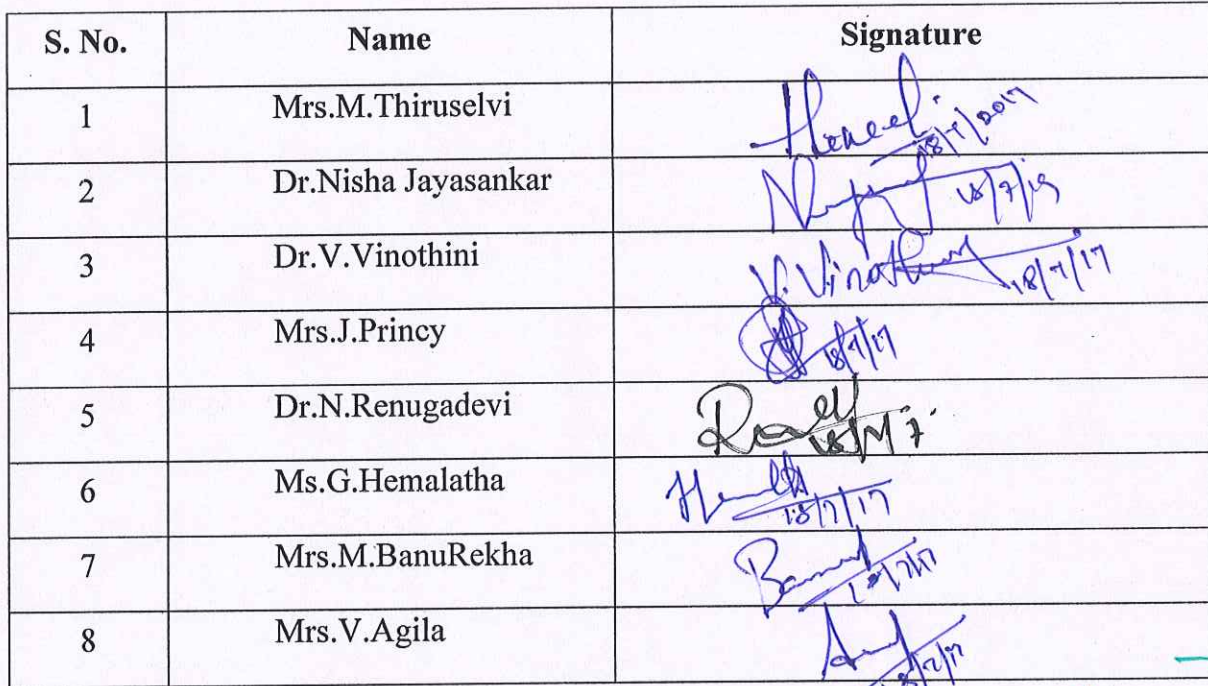 S. No. Name Signature
1 Mrs.M.Thiruselvi 18/7/2017
2 Dr.Nisha Jayasankar 18/7/19
3 Dr.V.Vinothini V.Vinothini 18/7/17
4 Mrs.J.Princy 18/7/17
5 Dr.N.Renugadevi
6 Ms.G.Hemalatha 18/7/17
7 Mrs.M.BanuRekha 18/7/17
8 Mrs.V.Agila